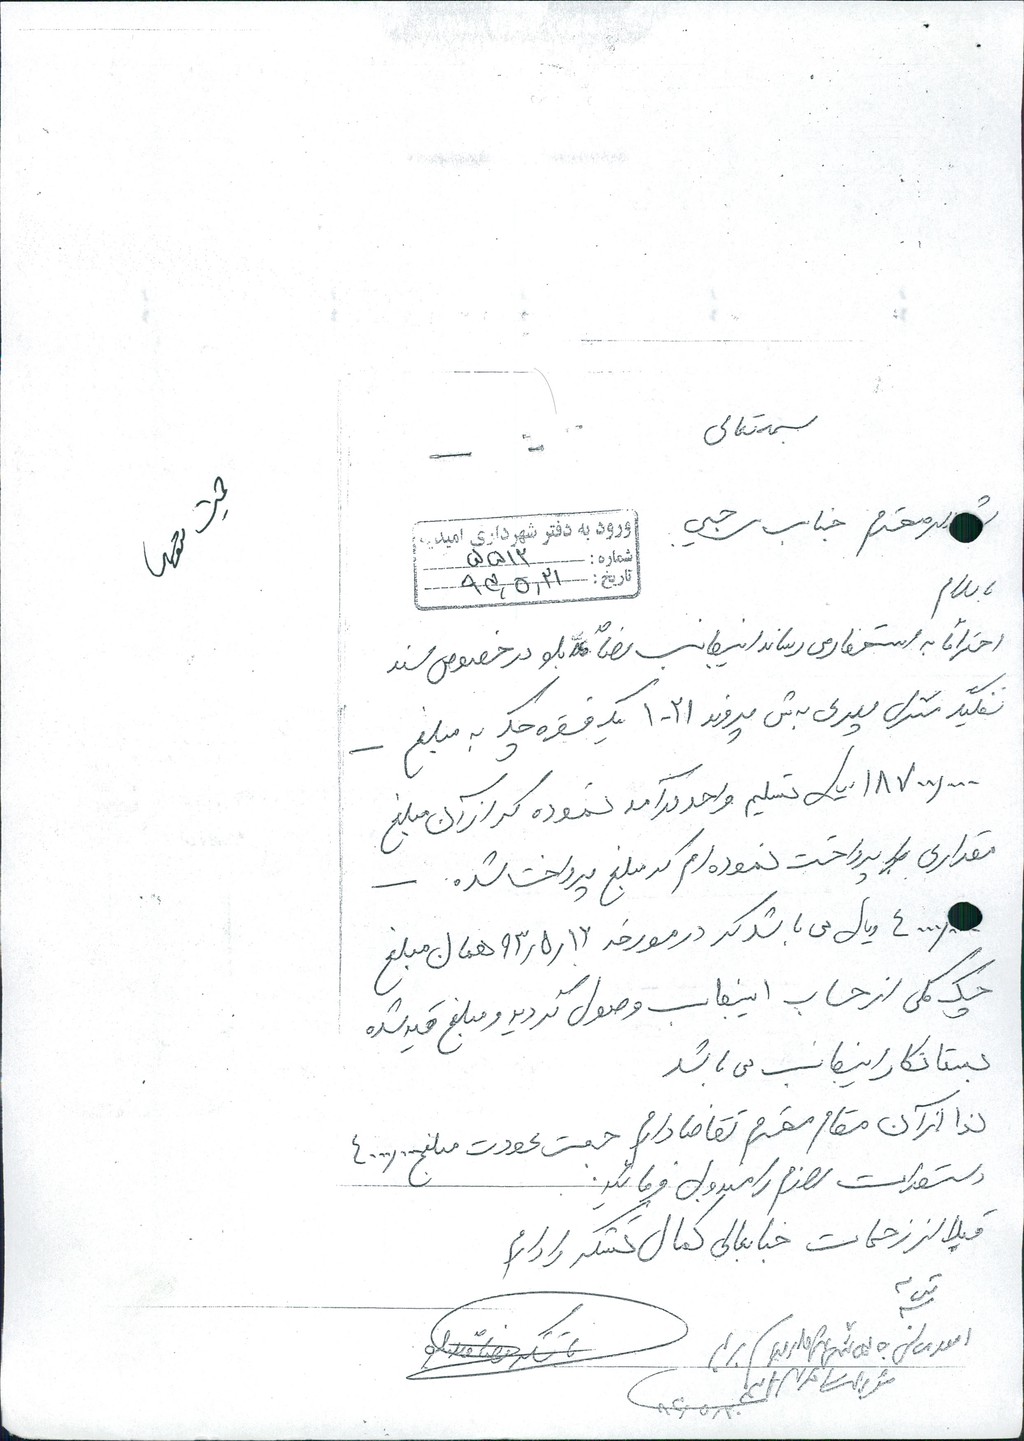 بسمه تعالی
شهردار محترم جناب رجبی
ورود به دفتر شهرداری امیدیه
شماره : ۵۵۱۲
تاریخ : ۹۴٫۵٫۲۱
با سلام
احتراماً به استحضار می رساند اینجانب در خصوص سند
تفکیک منزل پدری به ش پرونده ۲۱-۱ یک فقره چک به مبلغ
ریال تسلیم واحد درآمد نموده که از آن مبلغ
مقداری پرداخت نموده ام که مبلغ پرداخت شده
ریال می باشد که در مورخه ۹۳٫۵٫۱۲ همان مبلغ
چک کلی از حساب اینجانب وصول گردید و مبلغ قید شده
بستانکار اینجانب می باشد
لذا از آن مقام محترم تقاضا دارم جهت عودت مبلغ
دستورات لازم را مبذول فرمائید.
قبلا از زحمات جنابعالی کمال تشکر را دارم
با تشکر